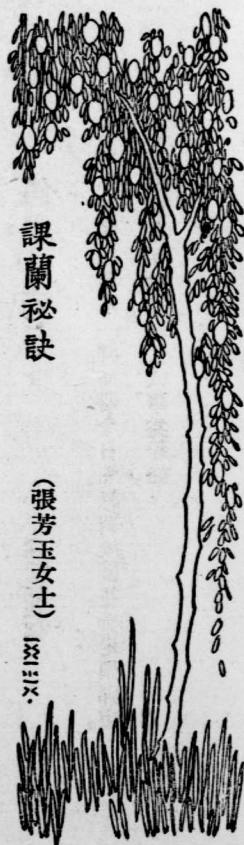 課蘭祕訣
(張芳玉女士)